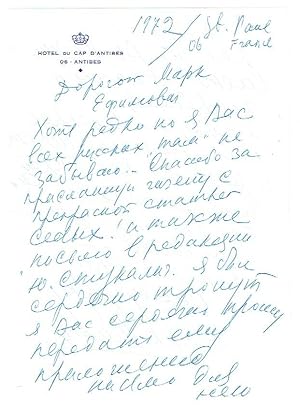 1972 / St. Paul
06 France
HOTEL DU CAP D'ANTIBES
06 - ANTIBES
Дорогой Марк
Ефимович
Хотя редко но я Вас
всех русских там" не
забываю... "Спасибо за
присланную газету с
прекрасной статьей
Седых! и также
письмо в редакцию
Я был
сердечно тронут
я Вас сердечно прошу
передать ему
приложенное
письмо для
него